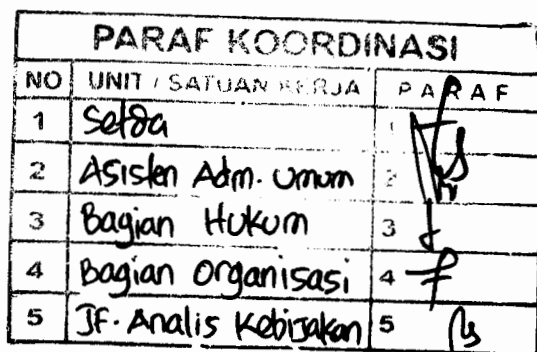 PARAF KOORDINASI
NO UNIT / SATUAN KERJA PARAF
1 Setda 1
2 Asisten Adm. Umum 2
3 Bagian Hukum 3
4 Bagian Organisasi 4
5 JF. Analis Kebijakan 5